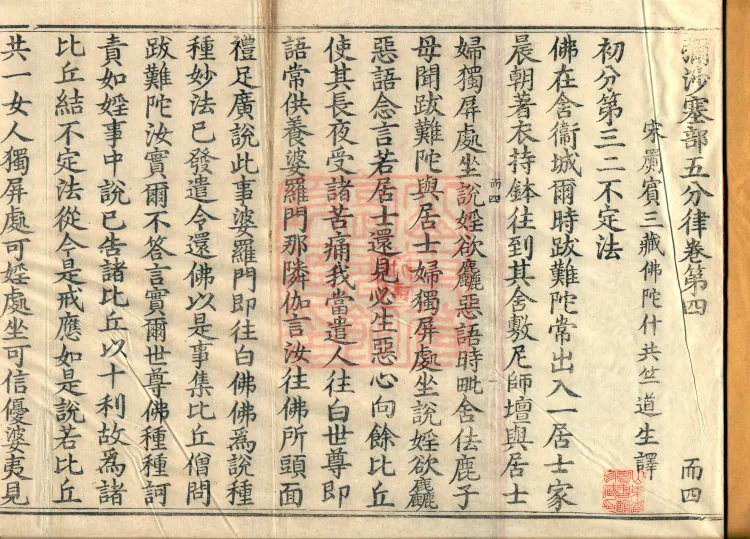 彌沙塞部五分律卷第四 而四
宋罽賓三藏佛陀什共竺道生譯
初分第三二不定法
佛在舍衞城爾時跋難陀常出入一居士家
晨朝著衣持鉢往到其舍敷尼師壇與居士
婦獨屏處坐說婬欲麤惡語時毗舍佉鹿子
而四
母聞跋難陀與居士婦獨屏處坐說婬欲麤
惡語念言若居士還見必生惡心向餘比丘
使其長夜受諸苦痛我當遣人往白世尊即
語常供養婆羅門那隣伽言汝往佛所頭面
禮足廣說此事婆羅門即往白佛佛爲說種
種妙法已發遣令還佛以是事集比丘僧問
跋難陀汝實爾不答言實爾世尊佛種種訶
責如婬事中說已告諸比丘以十利故爲諸
比丘結不定法從今是戒應如是說若比丘
共一女人獨屏處可婬處坐可信優婆夷見